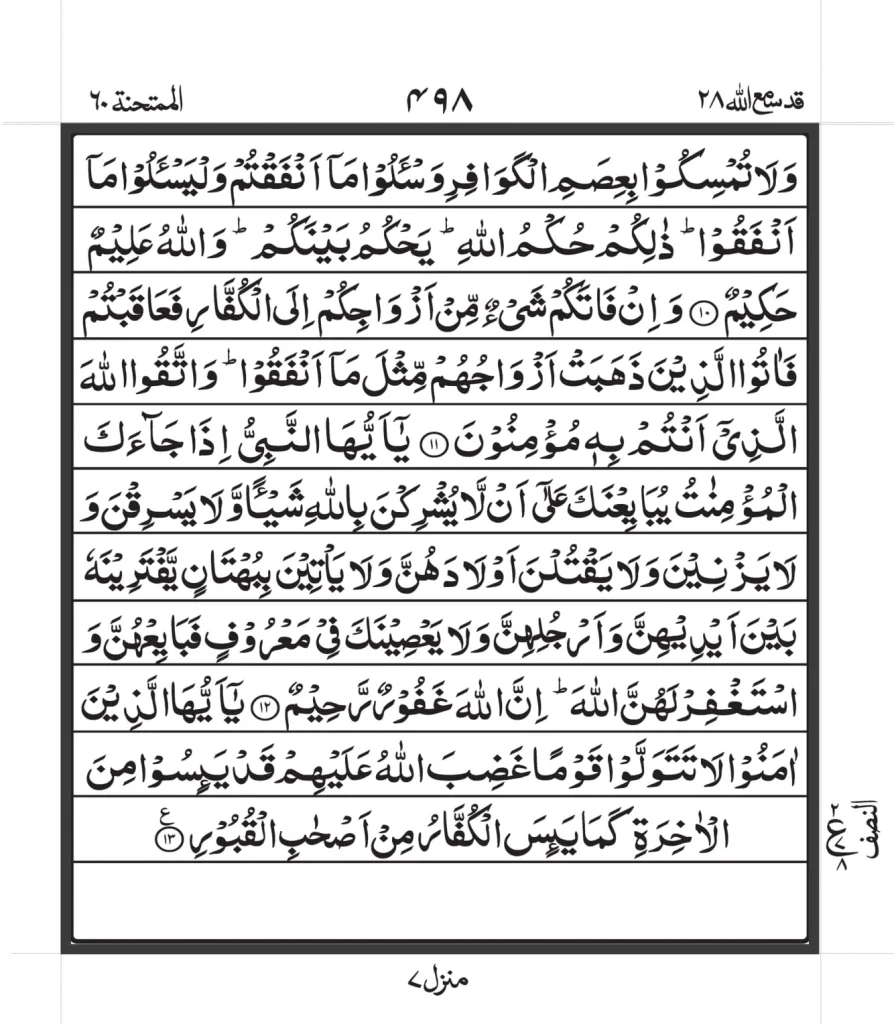 قد سمع الله ٢٨
۴۹۸
الممتحنة ٦٠
وَلَا تُمۡسِكُوۡا بِعِصَمِ الۡكَوَافِرِ وَسۡـَٔلُوۡا مَاۤ اَنۡفَقۡتُمۡ وَلۡيَسۡـَٔلُوۡا مَاۤ
اَنۡفَقُوۡا ؕ ذٰلِكُمۡ حُكۡمُ اللّٰهِ ؕ يَحۡكُمُ بَيۡنَكُمۡ ؕ وَاللّٰهُ عَلِيۡمٌ
حَكِيۡمٌ ﴿۱۰﴾ وَاِنۡ فَاتَكُمۡ شَىۡءٌ مِّنۡ اَزۡوَاجِكُمۡ اِلَى الۡكُفَّارِ فَعَاقَبۡتُمۡ
فَاٰتُوا الَّذِيۡنَ ذَهَبَتۡ اَزۡوَاجُهُمۡ مِّثۡلَ مَاۤ اَنۡفَقُوۡا ؕ وَاتَّقُوا اللّٰهَ
الَّذِىۡۤ اَنۡتُمۡ بِهٖ مُؤۡمِنُوۡنَ ﴿۱۱﴾ يٰۤاَيُّهَا النَّبِىُّ اِذَا جَآءَكَ
الۡمُؤۡمِنٰتُ يُبَايِعۡنَكَ عَلٰٓى اَنۡ لَّا يُشۡرِكۡنَ بِاللّٰهِ شَيۡـًٔا وَّلَا يَسۡرِقۡنَ وَ
لَا يَزۡنِيۡنَ وَلَا يَقۡتُلۡنَ اَوۡلَادَهُنَّ وَلَا يَاۡتِيۡنَ بِبُهۡتَانٍ يَّفۡتَرِيۡنَهٗ
بَيۡنَ اَيۡدِيۡهِنَّ وَاَرۡجُلِهِنَّ وَلَا يَعۡصِيۡنَكَ فِىۡ مَعۡرُوۡفٍ فَبَايِعۡهُنَّ وَ
اسۡتَغۡفِرۡ لَهُنَّ اللّٰهَ ؕ اِنَّ اللّٰهَ غَفُوۡرٌ رَّحِيۡمٌ ﴿۱۲﴾ يٰۤاَيُّهَا الَّذِيۡنَ
اٰمَنُوۡا لَا تَتَوَلَّوۡا قَوۡمًا غَضِبَ اللّٰهُ عَلَيۡهِمۡ قَدۡ يَٮِٕسُوۡا مِنَ
الۡاٰخِرَةِ كَمَا يَٮِٕسَ الۡكُفَّارُ مِنۡ اَصۡحٰبِ الۡقُبُوۡرِ ﴿۱۳﴾ ع
النصف
٢ ع ٧ ٨
منزل ٧